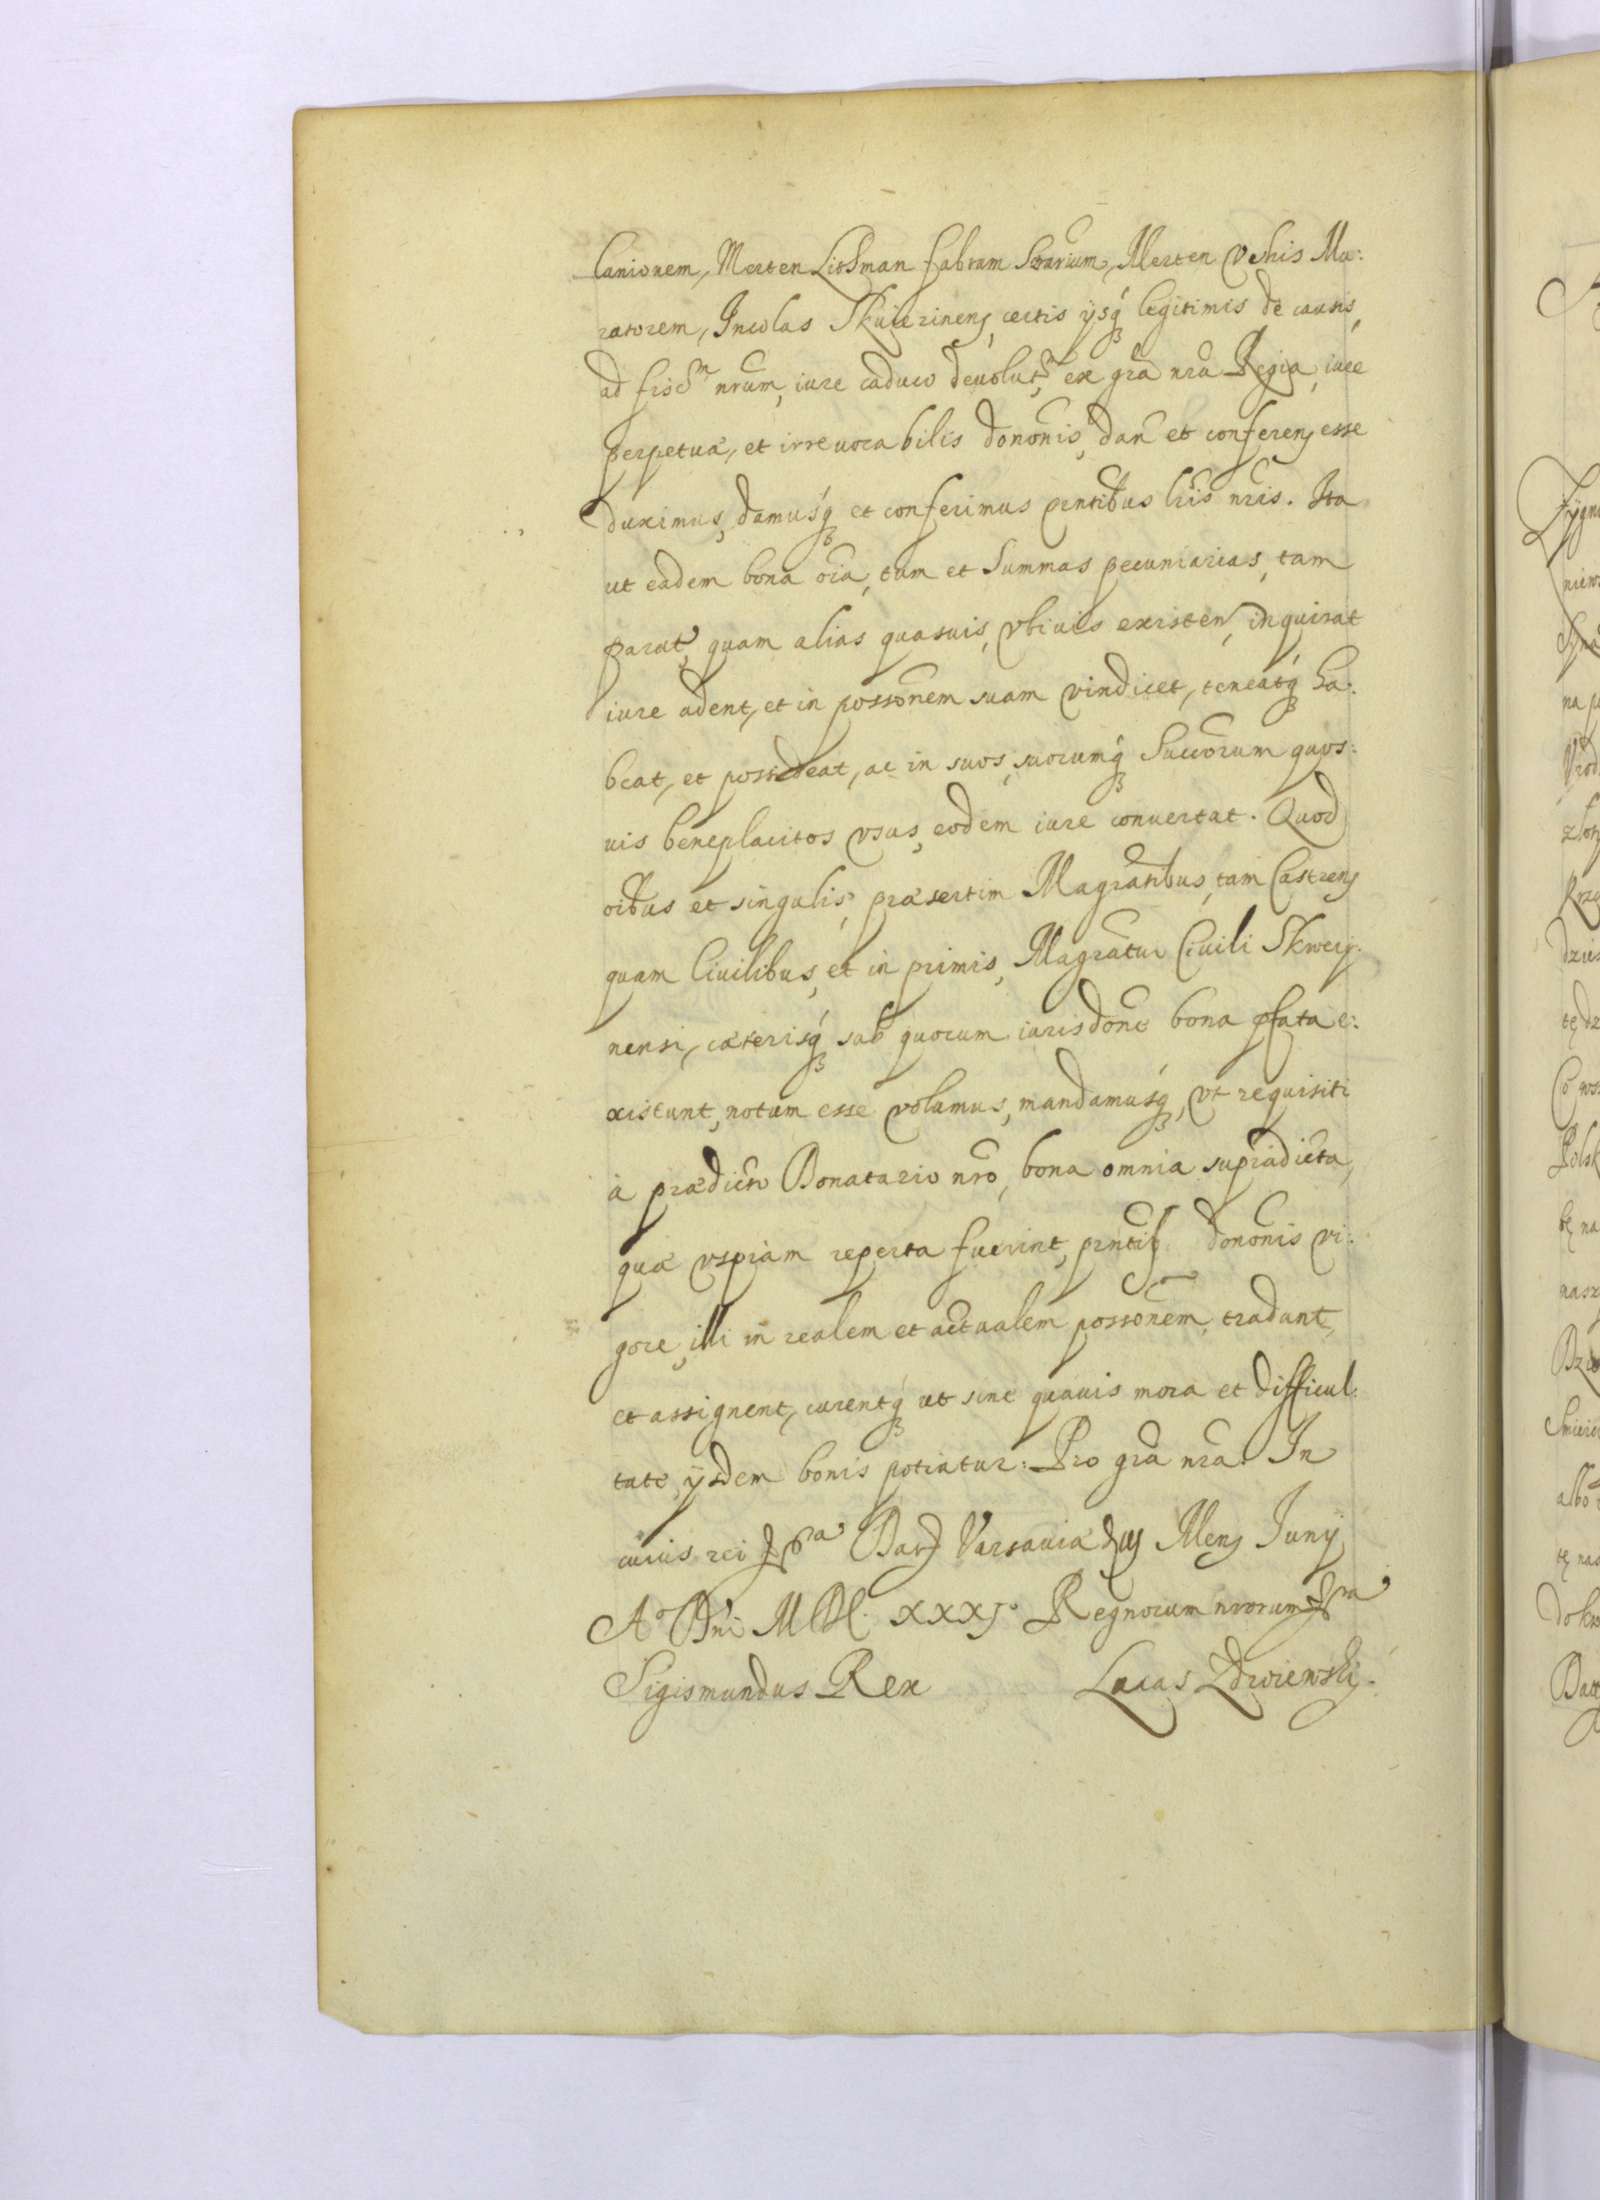 lanionem, Merten Lithman fabrum Serarium, Merten Vehis Mu:
ratorem, Incolas Skwierinens, certis ysq3 legitimis de causis,
ad fiscum nrum, iure caduco devolut, ex gra nra Regia, iure
perpetuæ, et irreuocabilis dononis, dan et conferens esse
duximus, damusq3 et conferimus pntibus lris nris. Ita
ut eadem bona oia, tum et Summas pecuniarias, tam
parat, quam alias quasuis, vbiuis existen, inquirat
iure adeat, et in possonem suam vindicet, teneatq3 ha:
beat, et possideat, ac in suos, suorumq3 Succorum quos:
uis beneplacitos vsus, eodem iure conuertat. Quod
oibus et singulis, præsertim Magratibus, tam Castrens
quam Ciuilibus, et in primis, Magratui Ciuili Skwery:
nensi, cæterisq3 sub quorum iurisdone bona pfata e:
xistunt, notum esse volumus, mandamusq3, vt requisiti
à prædicto Donatario nro, bona omnia supradicta,
quæ vspiam reperta fuerint, pntis dononis vi:
gore, illi in realem et actualem possonem, tradant,
et assignent, curentq3 ut sine quauis mora et difficul:
tate, ysdem bonis potiatur: Pro gra nra. In
cuius rei Dat Varsauiæ Mens Juny
Ao Dni MDC. XXXJo Regnorum nrorum
Sigismundus Rex Lucas Zdwiewski.
Zygm
niews
na p
Vrod
złon
Krzy
dzies
tę dz
Co ws
Polsk
bę na
nasz
albo
tę nas
do kr
Datt